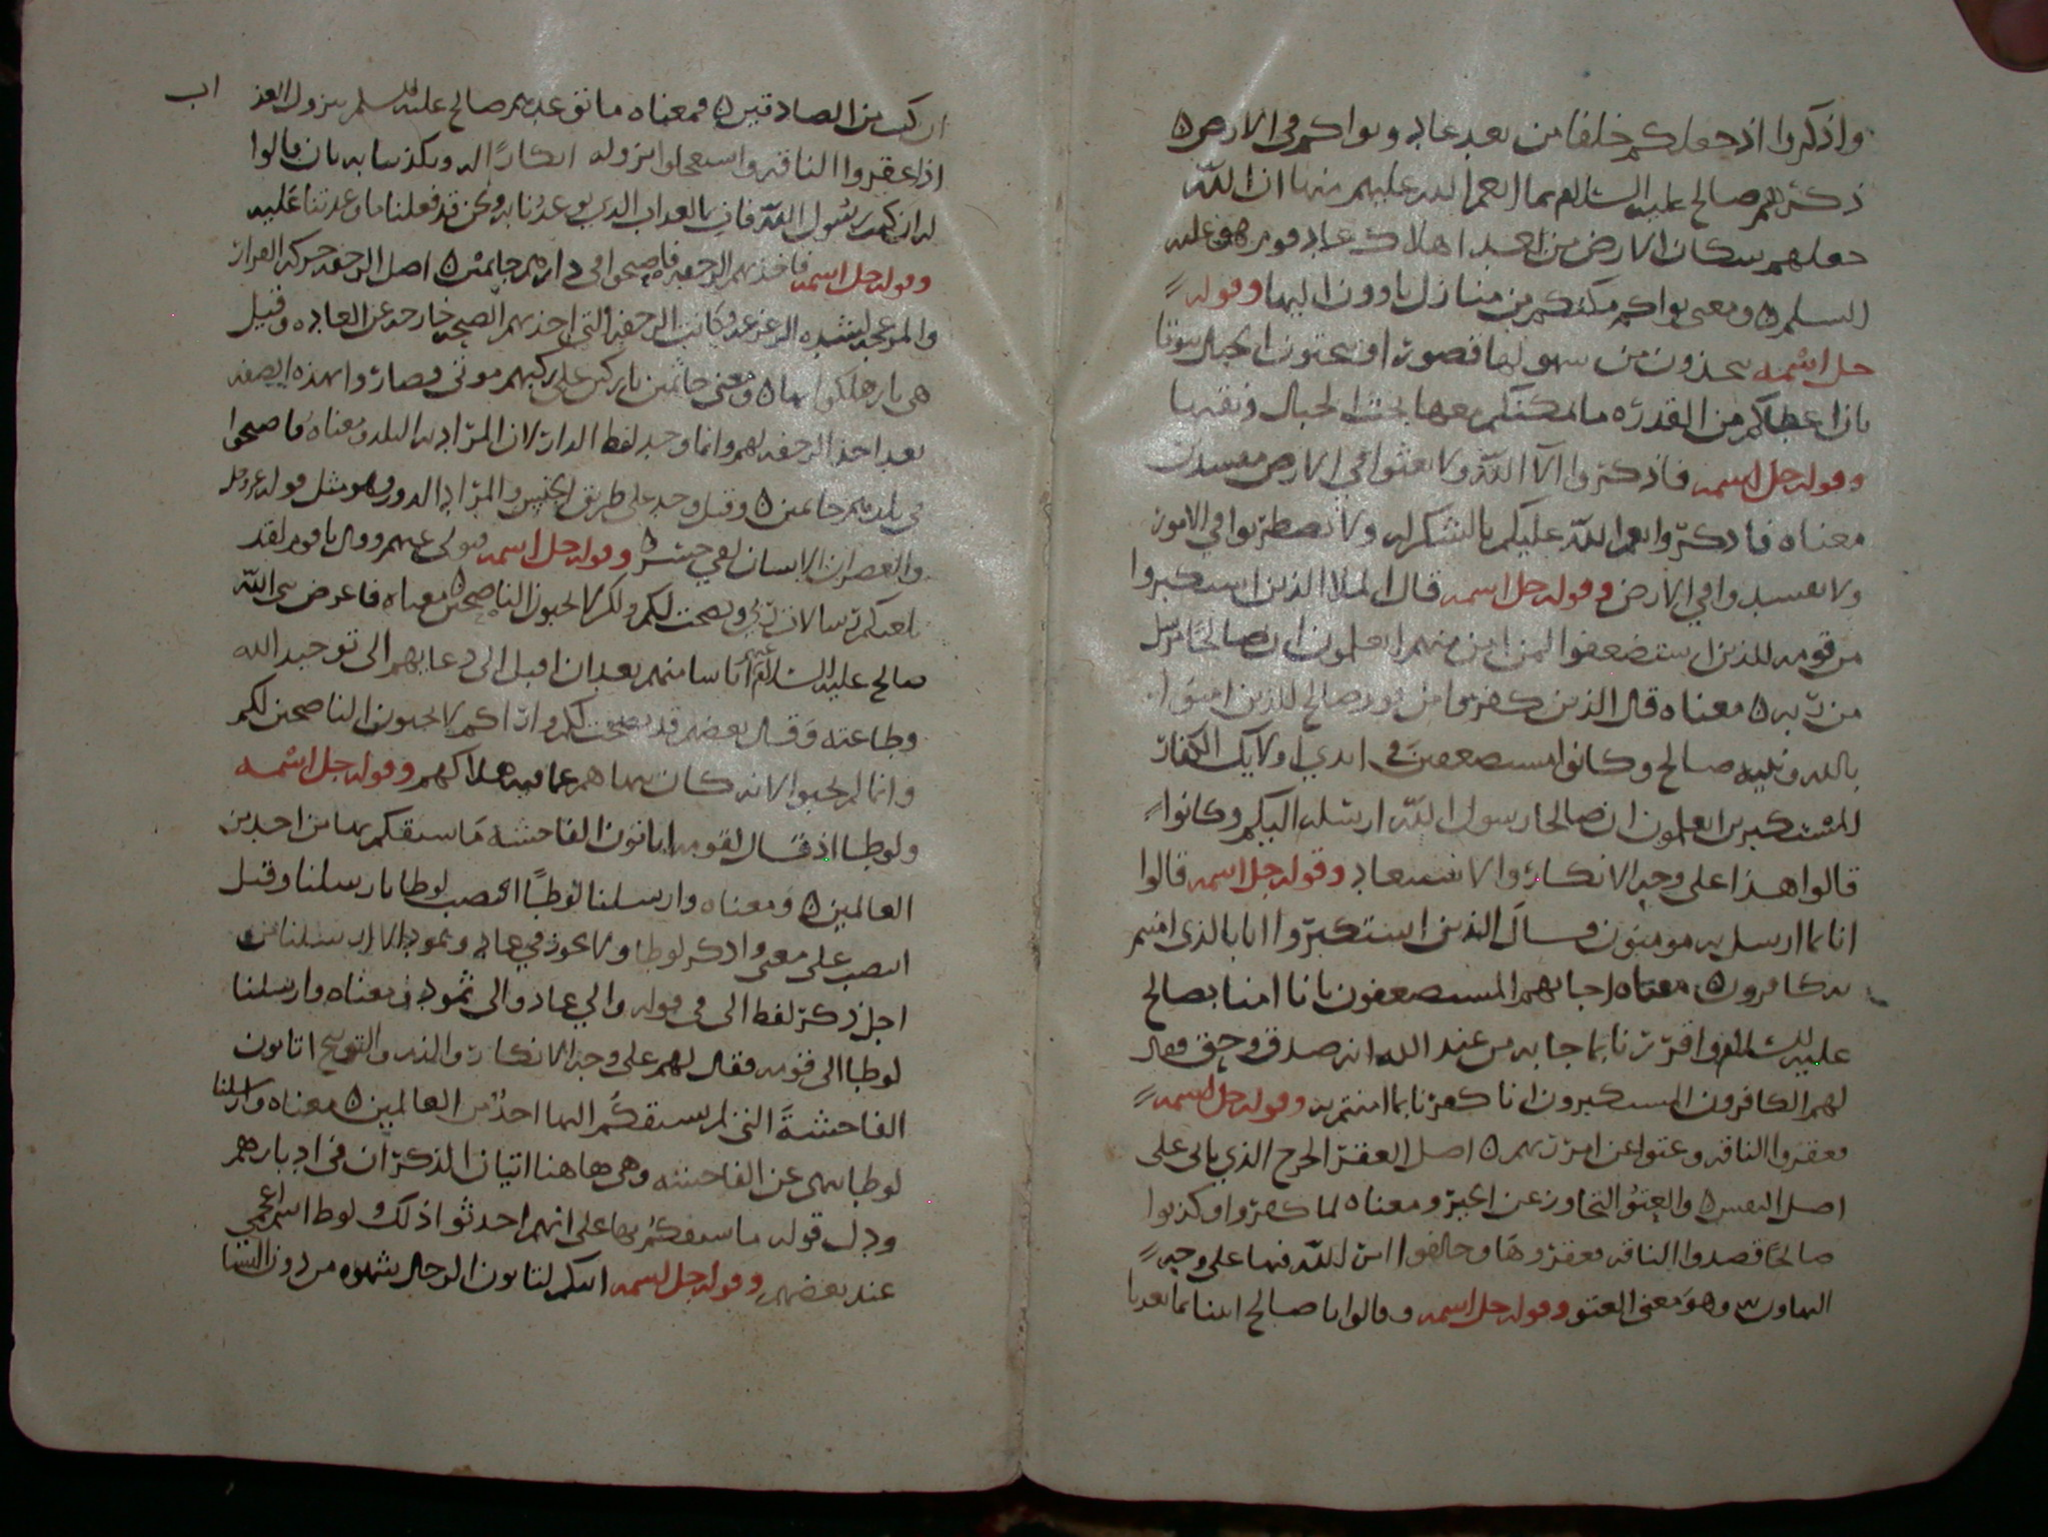 واذكروا اذ جعلكم خلفا من بعد عاد وبواكم في الارض ه
ذكرهم صالح عليه السلام بما انعم الله عليهم منها ان الله
جعلهم سكان الارض من بعد اهلاك عاد قوم هود عليه
السلم ه ومعنى بواكم مكنكم من منازل تاوون اليها وقوله
جل اسمه تتخذون من سهولها قصورا وتنحتون الجبال بيوتا
بان اعطاكم من القدرة ما تمكنتم معها نحت الجبال ونقبها
وقوله جل اسمه فاذكروا الآ الله ولا تعثوا في الارض مفسدين
معناه فاذكروا نعم الله عليكم بالشكر له ولا تضطربوا في الامور
ولا تفسدوا في الارض وقوله جل اسمه قال الملا الذين استكبروا
من قومه للذين استضعفوا لمن امن منهم اتعلمون ان صالحا مرسل
من ربه ه معناه قال الذين كفروا من قوم صالح للذين امنوا
بالله ونبيه صالح وكانوا مستضعفين في ايدي اولايك الكفار
المستكبرين اتعلمون ان صالحا رسول الله ارسله اليكم وكانوا
قالوا هذا على وجه الانكار والاستبعاد وقوله جل اسمه قالوا
انا بما ارسل به مومنون وقال الذين استكبروا انا بالذي امنتم
به كافرون ه معناه اجابهم المستضعفون بانا امنا بصالح
عليه السلام واقررنا بما جا به من عند الله انه صدق وحق وقال
لهم الكافرون المستكبرون انا كفرنا بما امنتم به وقوله جل اسمه
فعقروا الناقه وعتوا عن امر ربهم ه اصل العقر الجرح الذي ياتي على
اصل النفس ه والعتو التجاوز عن الحد ومعناه لما كفروا وكذبوا
صالحا قصدوا الناقه فعقروها وخالفوا امر الله فيها على وجه
التهاون به وهو معنى العتو وقوله جل اسمه وقالوا يا صالح ايتنا بما تعدنا
ان كنت من الصادقين ه فمعناه ما توعدهم صالح عليه السلم بنزول العذاب
اذا عقروا الناقه واستعجلوا نزوله انكارا له وتكذيبا به بان قالوا
له ان كنت رسول الله فات بالعذاب الذي توعدنا به ونحن قد فعلنا ما وعدتنا عليه
وقوله جل اسمه فاخذتهم الرجفه فاصبحوا في دارهم جاثمين ه اصل الرجفه حركه القرار
والمزعجه لشده الزعزعه وكانت الرجفه التي اخذتهم الصيحه خارجه عن العاده وقيل
هي نار هلكوا بها ه ومعنى جاثمين باركين على ركبهم موتى وصاروا بهذه الصفه
بعد اخذ الرجفه لهم وانما وحد لفظ الدار لان المراد به البلد ومعناه فاصبحوا
في بلدهم جاثمين ه وقيل وحد على طريق الجنس والمراد الدور وهو مثل قوله عز وجل
والعصر ان الانسان لفي خسر ه وقوله جل اسمه فتولى عنهم وقال يا قوم لقد
بلغتكم رسالات ربي ونصحت لكم ولكن لا تحبون الناصحين ه معناه فاعرض نبي الله
صالح عليه السلام عنهم اياسا منهم بعد ان اقبل الى دعايهم الى توحيد الله
وطاعته وقال بعضهم قد نصحت لكم واراكم لا تحبون الناصحين لكم
وانما لم يحبوا لانه كان ينهاهم عما فيه هلاكهم وقوله جل اسمه
ولوطا اذ قال لقومه اتاتون الفاحشة ما سبقكم بها من احد من
العالمين ه ومعناه وارسلنا لوطا انتصب لوطا بارسلنا وقيل
انتصب على معنى واذكر لوطا ولا يجوز في عاد وثمود الا ارسلنا من
اجل ذكر لفظ الى في قوله والى عاد والى ثمود ومعناه وارسلنا
لوطا الى قومه فقال لهم على وجه الانكار والذم والتوبيخ اتاتون
الفاحشة التي لم يسبقكم اليها احد من العالمين ه معناه وارسلنا
لوطا ينهى عن الفاحشه وهي هاهنا اتيان الذكران في ادبارهم
ودل قوله ما سبقكم بها على انهم احدثوا ذلك ولوطا اسم اعجمي
عند بعضهم وقوله جل اسمه انكم لتاتون الرجال شهوه من دون النسا